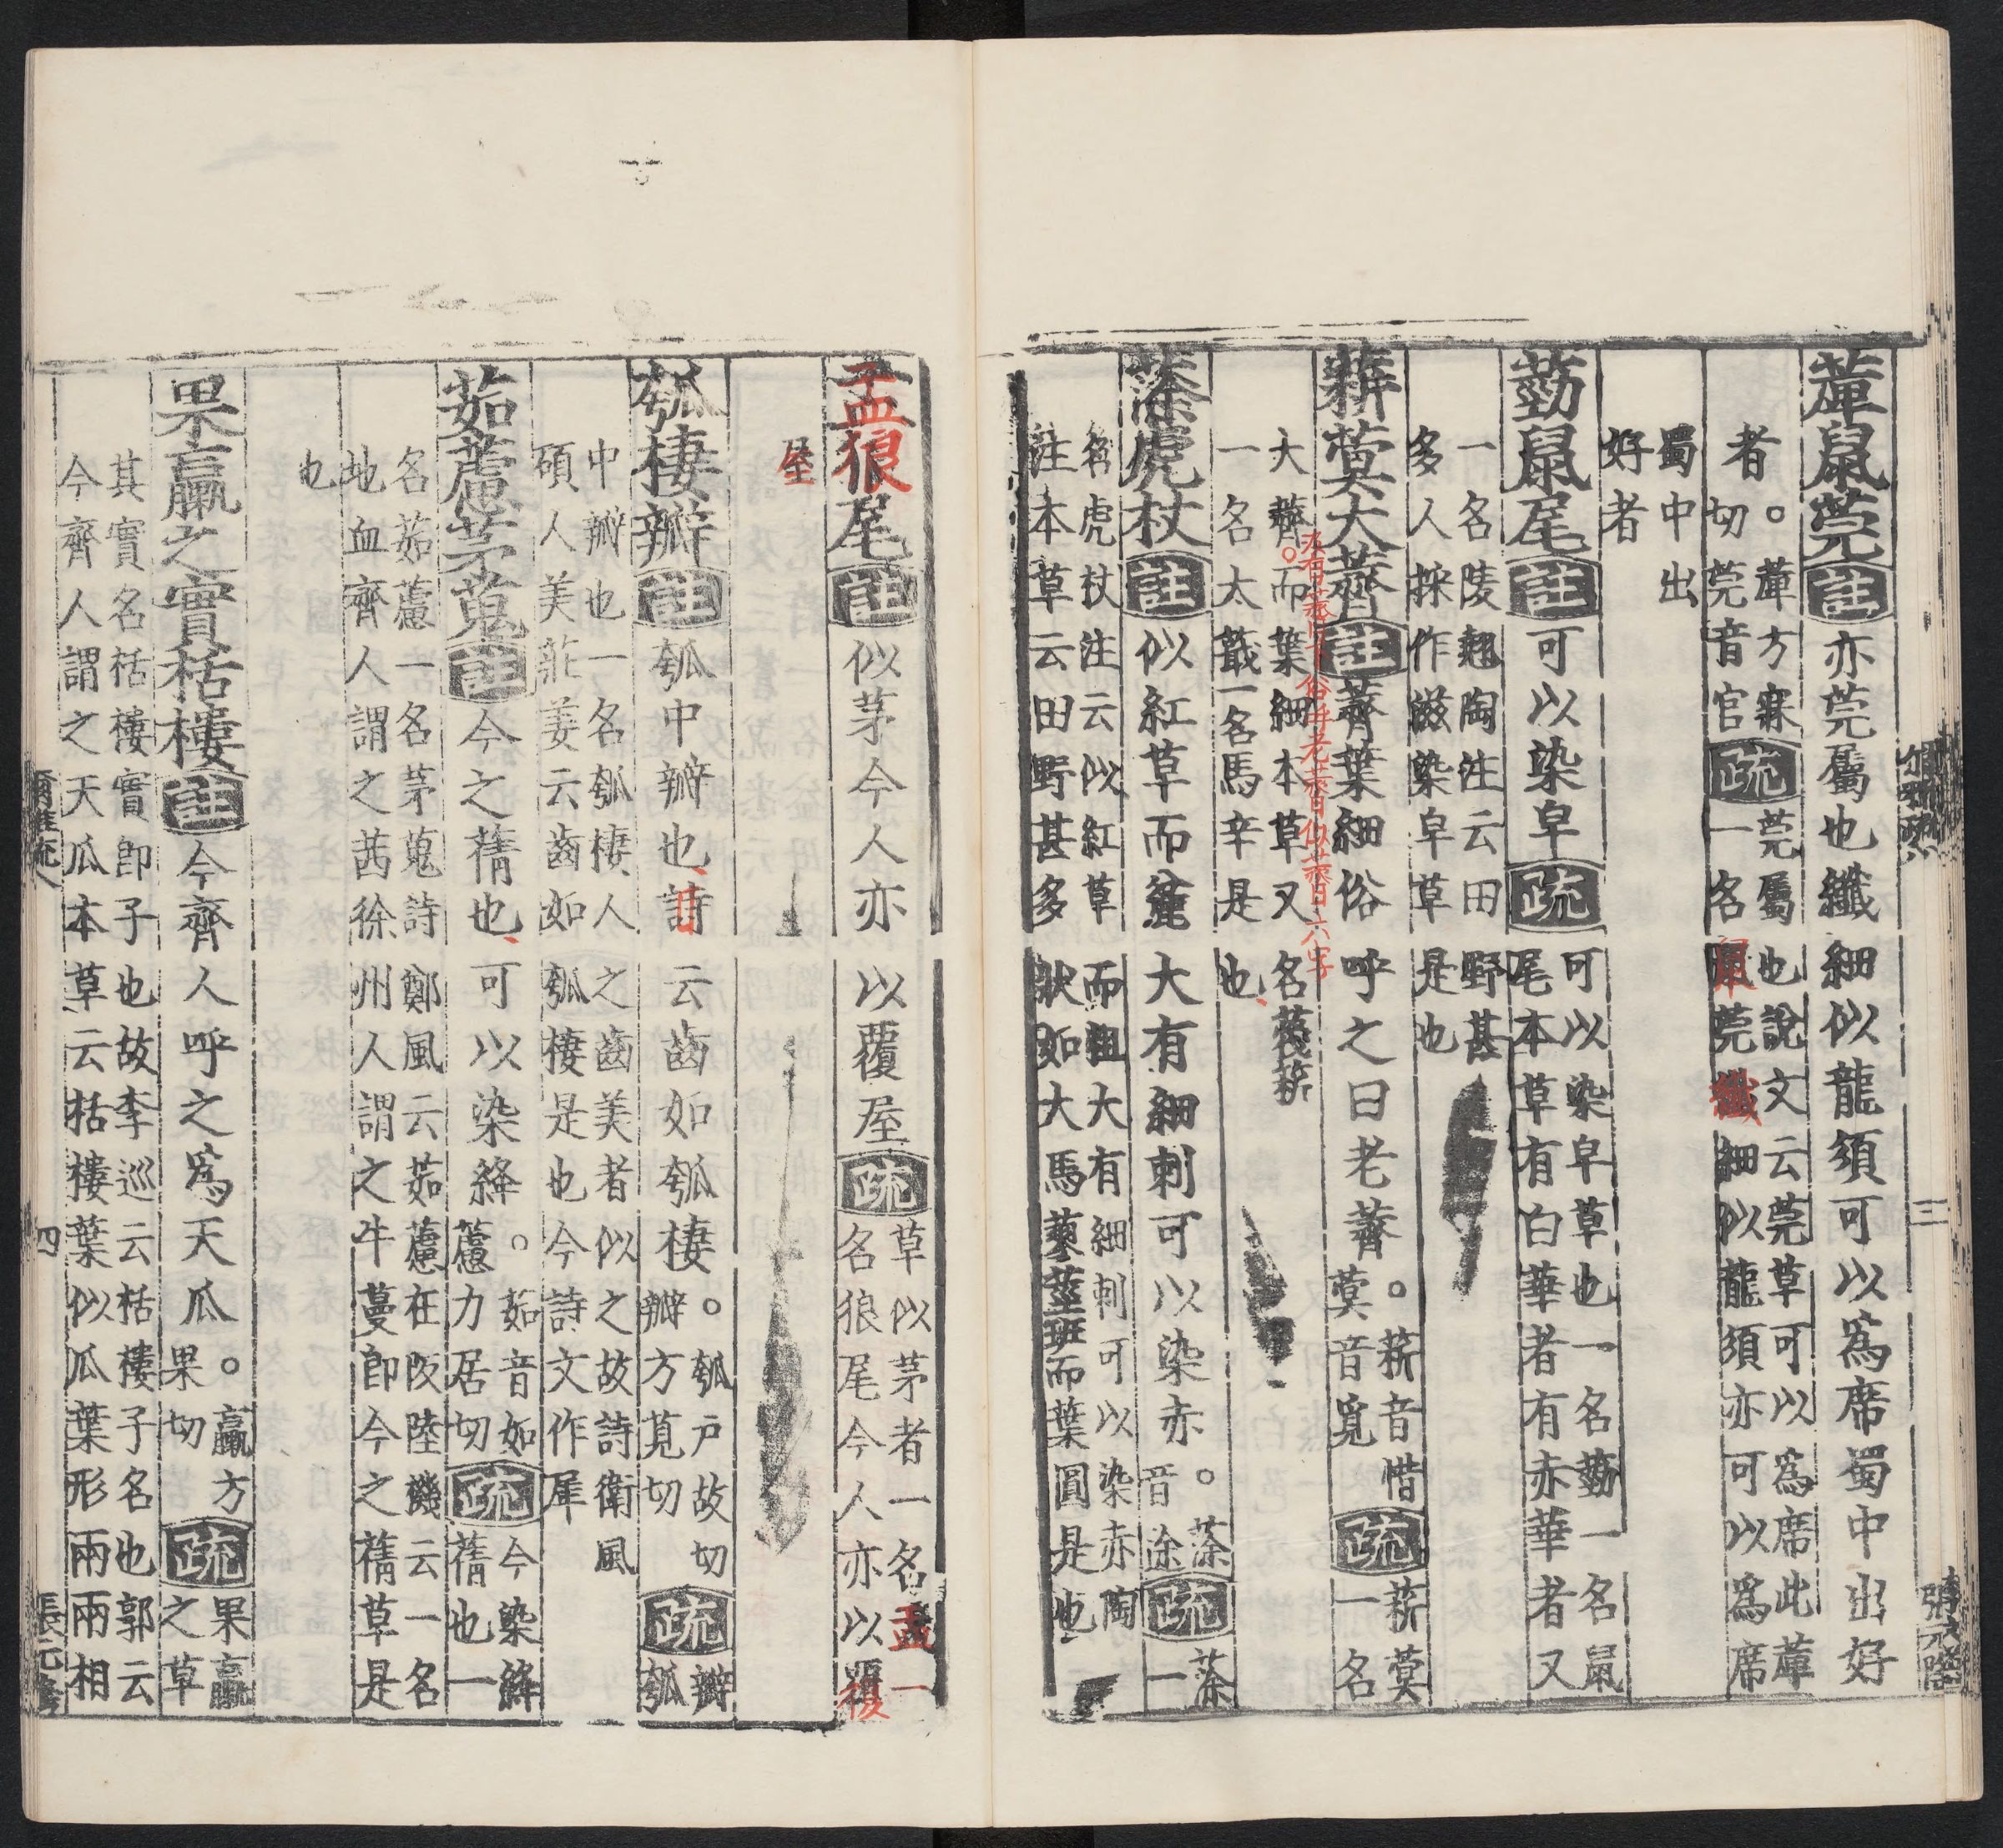 蓷鼠莞註亦莞屬也纖細似龍須可以爲席蜀中出好
者。蓷方寐
切莞音官疏莞屬也說文云莞草可以爲席此蓷
一名鼠莞纖細似龍須亦可以爲席
蜀中出
好者
葝鼠尾註可以染皁疏可以染皁草也一名葝一名鼠
尾本草有白華者有赤華者又
一名陵翹陶注云田野甚
多人採作滋染皁草是也
菥蓂大薺註薺葉細俗呼之曰老薺。菥音惜
蓂音覓疏菥蓂
一名
大薺。而葉細本草又名蔑菥
一名太蕺一名馬辛是也
蒤虎杖註似紅草而麄大有細刺可以染赤。蒤
音途疏蒤
一
名虎杖注云似紅草而粗大有細刺可以染赤陶
注本草云田野甚多狀如大馬蓼莖班而葉圓是也
孟狼尾註似茅今人亦以覆屋疏草似茅者一名孟一
名狼尾今人亦以覆
屋
瓠棲瓣註瓠中瓣也詩云齒如瓠棲。瓠戶故切
瓣方莧切疏瓣
瓠
中瓣也一名瓠棲人之齒美者似之故詩衛風
碩人美莊姜云齒如瓠棲是也今詩文作犀
茹藘茅蒐註今之蒨也可以染絳。茹音如
藘力居切疏今染絳
蒨也一
名茹藘一名茅蒐詩鄭風云茹藘在阪陸機云一名
地血齊人謂之茜徐州人謂之牛蔓即今之蒨草是
也
果臝之實栝樓註今齊人呼之爲天瓜。臝方
果切疏果臝
之草
其實名栝樓實即子也故李巡云栝樓子名也郭云
今齊人謂之天瓜本草云栝樓葉似瓜葉形兩兩相
爾雅疏八
四
三